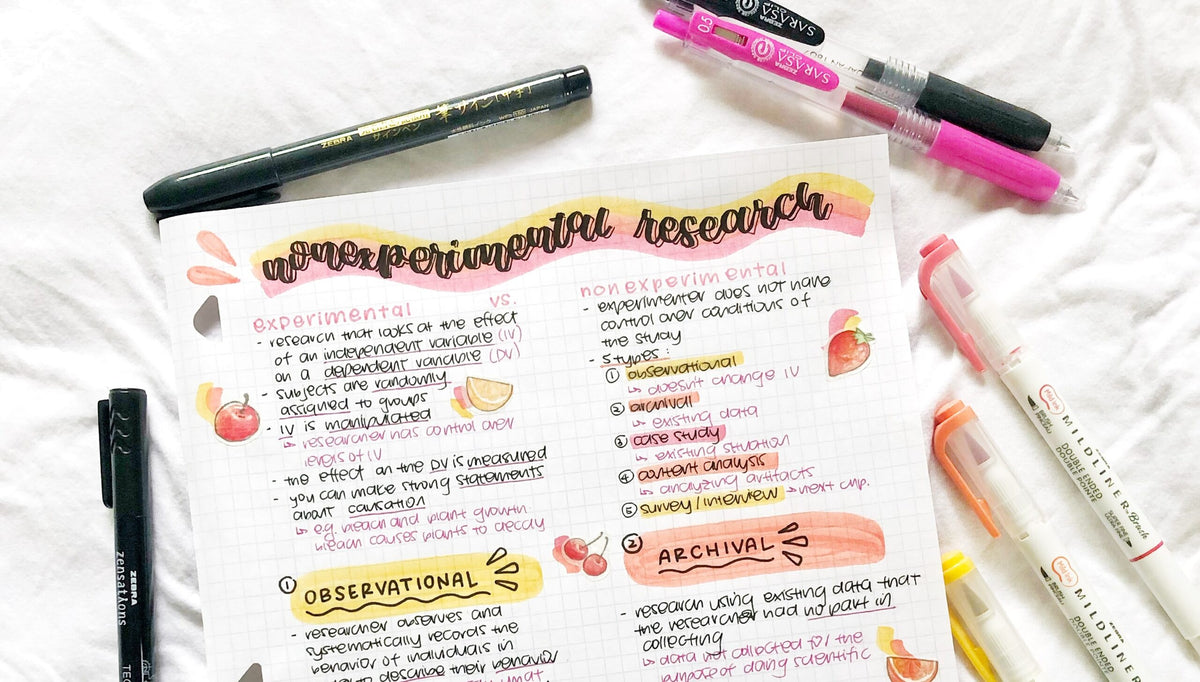 nonexperimental research
experimental vs.
- research that looks at the effect
of an independent variable (IV)
on a dependent variable (DV)
- subjects are randomly
assigned to groups
- IV is manipulated
↳ researcher has control over
levels of IV
- the effect on the DV is measured
- you can make strong statements
about causation
↳ e.g. bleach and plant growth.
bleach causes plants to decay
① OBSERVATIONAL
- researcher observes and
systematically records the
behavior of individuals in
to describe their behavior
nonexperimental
- experimenter does not have
control over conditions of
the study
- 5 types:
① observational
↳ doesn't change IV
② archival
↳ existing data
③ case study
↳ existing situation
④ content analysis
↳ analyzing artifacts
⑤ survey/interview → next chp.
② ARCHIVAL
- research using existing data that
the researcher had no part in
collecting
↳ data not collected for the
purpose of doing scientific
ZEBRA
サインペン
筆サイン
JAPAN
SARASA CLIP
ZEBRA
0.5
SARASA CLIP
ZEBRA
ZEBRA
zensations
TEC
Mild ink
MILDLINER Brush
DOUBLE ENDED
DOUBLE POINTE
BRUSH
PINCEAU
SUPER FINE
Mild ink
MILDLINER
DOUBLE ENDED
DOUBLE POINTE
BRUSH
PINCEAU